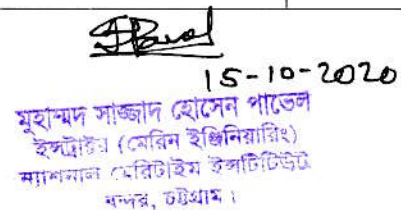 15-10-2020
মুহাম্মদ সাজ্জাদ হোসেন পাভেল
ইন্সট্রাক্টর (মেরিন ইঞ্জিনিয়ারিং)
ন্যাশনাল মেরিটাইম ইন্সটিটিউট
বন্দর, চট্টগ্রাম।